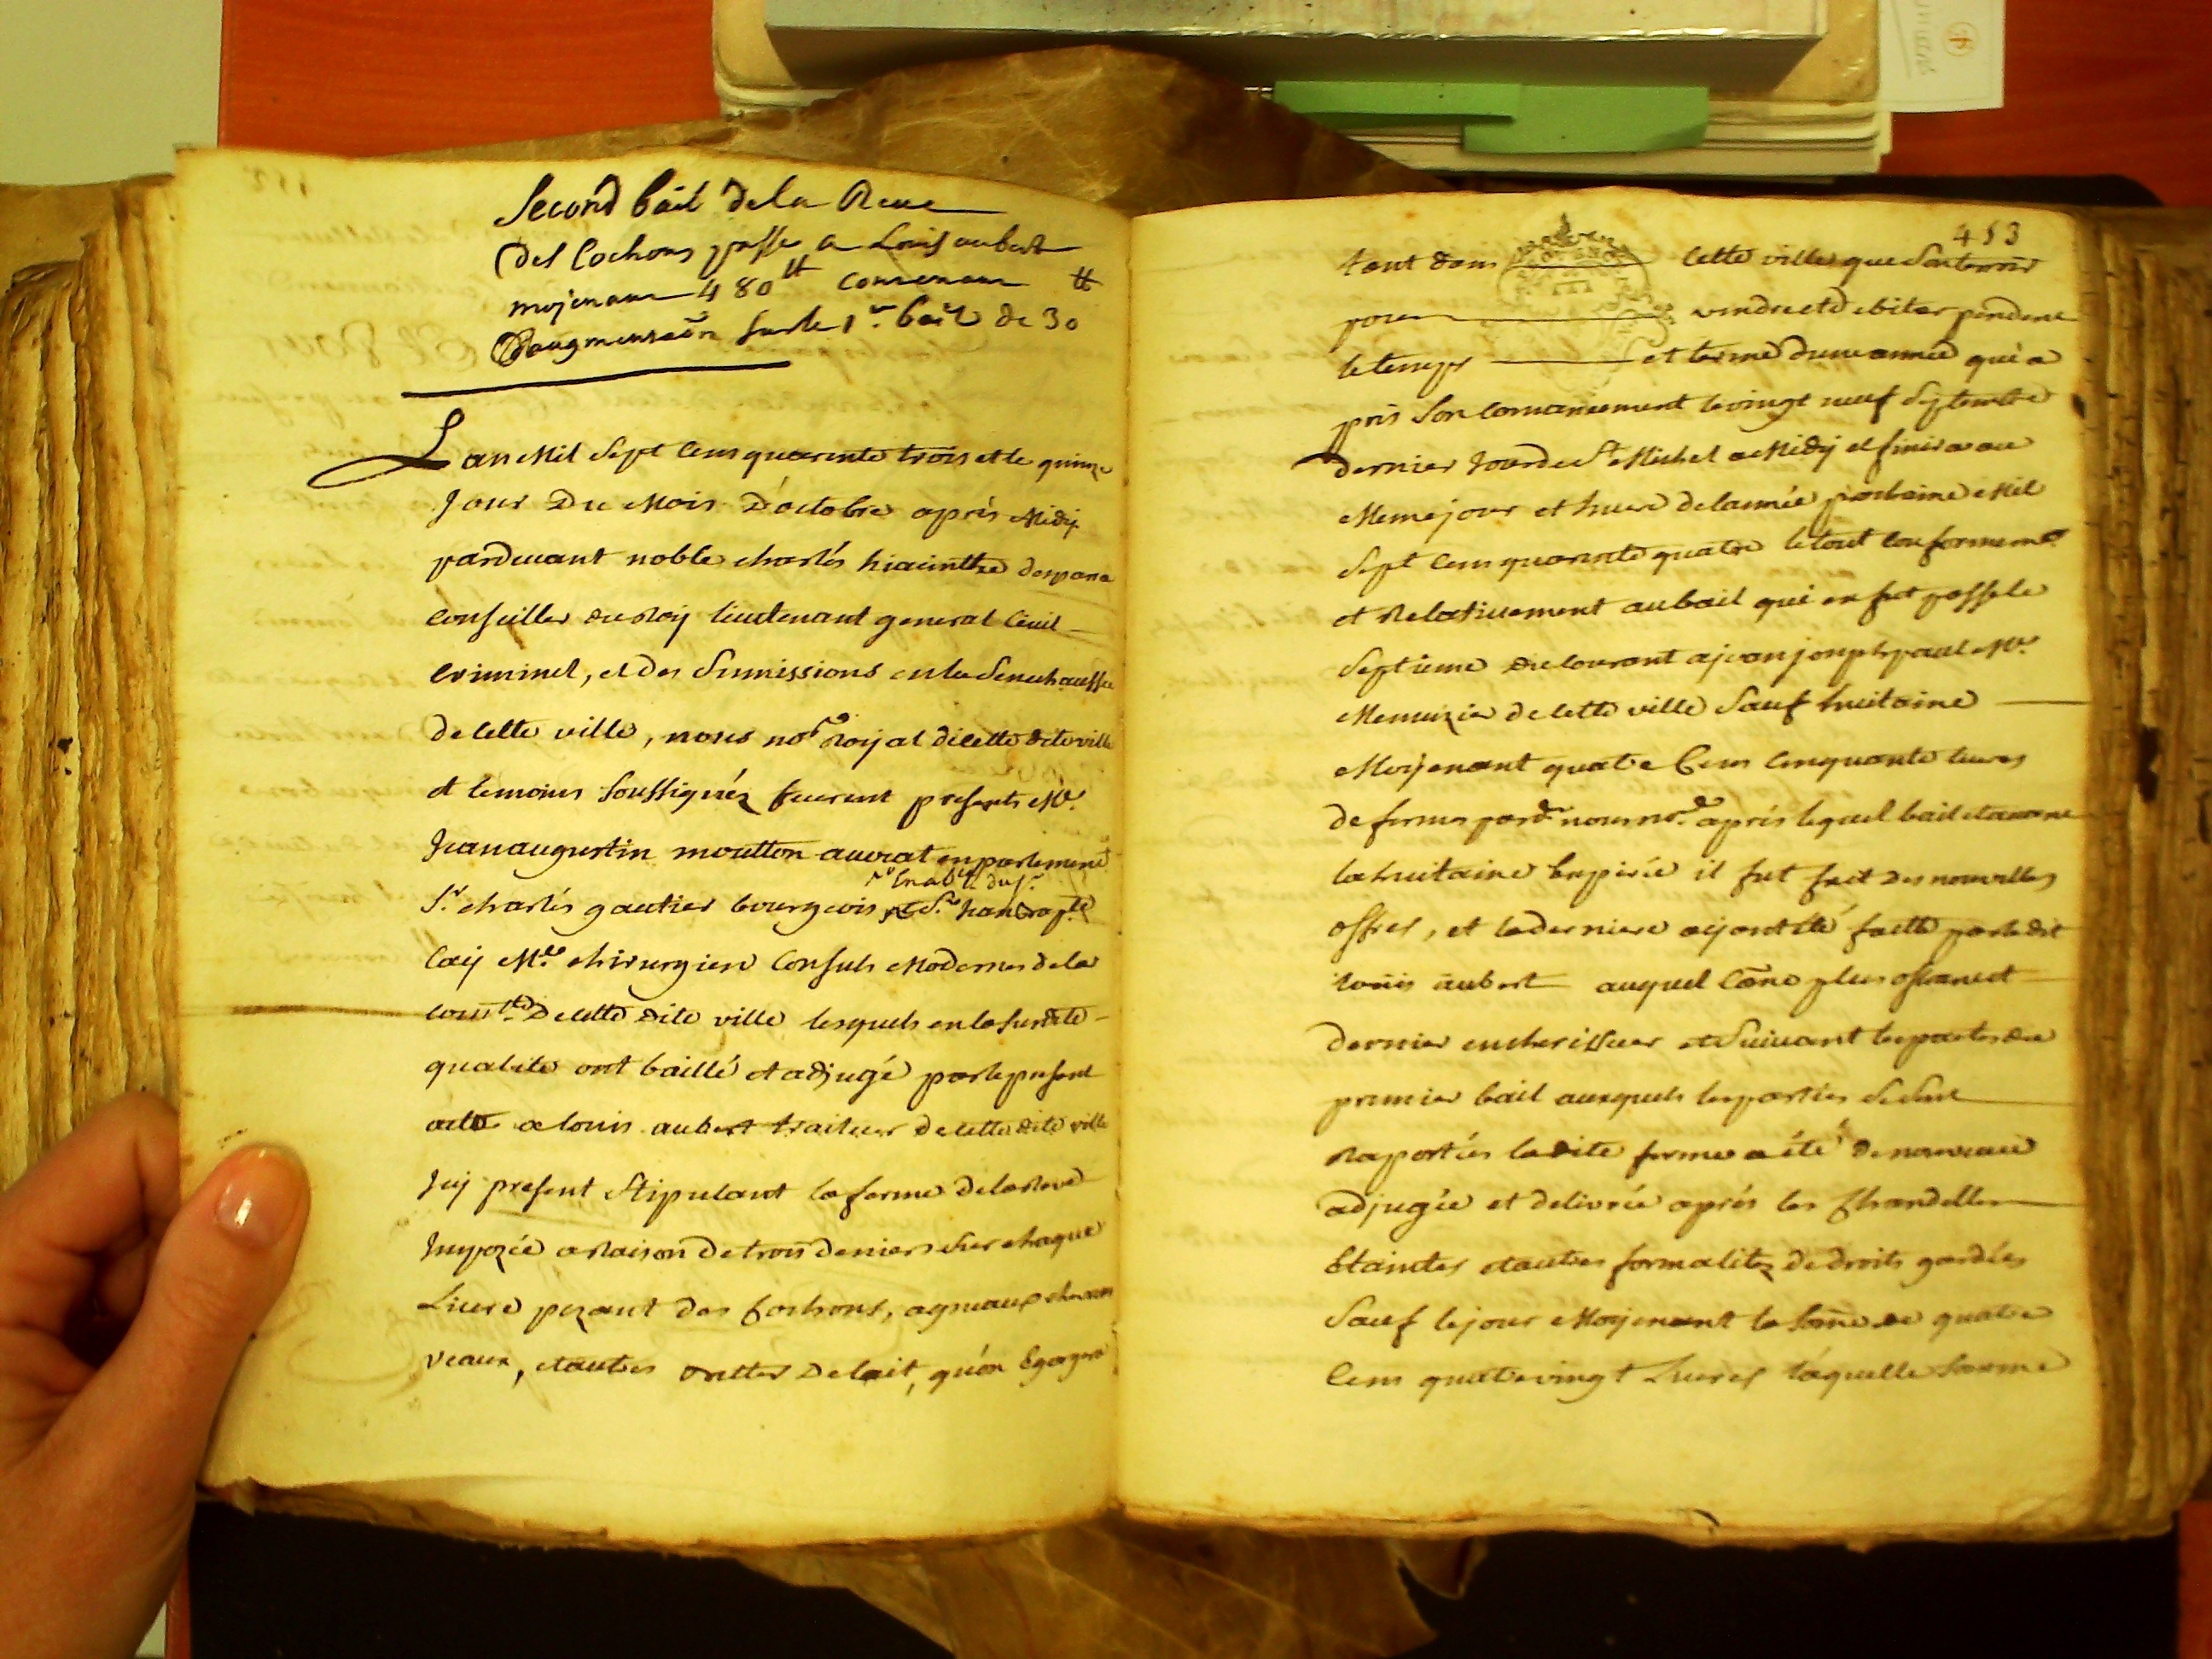 Second bail de la Reve
Des Cochons passé a Louis aubert
mojenant 480 ₶
D'augmentaõn sur le 1er. bail de 30 ₶
L'an Mil Sept Cens quarente trois et le quinze
Jour Du Mois D'octobre aprés Midy
pardeuant noble charlés hiacinthe
Conseiller du Roy lieutenant general Ciuil
Criminel, et des Sumissions en la Senechaussée
de cette ville, nous nore Royal de cette dite ville
et temoins soussignéz feurent presents Me.
Jean augustin moutton auocat en parlement
Sr. charlés gautier bourgeois
Me. chirurgien Consuls Modernes de la
Comté. De cette dite ville lesquels en la susdite
qualite ont baillé et adjugé par le present
acte a louis aubert traiteur de cette dite ville
Icy present Stipulant la ferme de la Reve
Impozée a Raison De trois deniers sur chaque
Liure pezant des Cochons, agneaux
veaux, et autres De lait, qu'on Egorgera
453
tant dans cette ville que son terroir
pour vendre et debiter pendent
le temps et terme d'une année qui a
pris son commancement le vingt neuf Septembre
dernier Jour de St. Michel a Midy et finira au
Meme jour et heure de l'année prochaine Mil
Sept Cens quarente quatre le tout conformemt
et Relatiuement au bail qui en fut passé le
Septieme du Courant a jean joseph paul Me.
Menuizier de cette ville Sauf huitaine
Moyenant quatre Cens Cinquante liures
de ferme pardt. nous nore. aprés lequel bail et auant
la huitaine Expirée il fut fait des nouvelles
offres, et la derniere ayant été faitte par le dit
loüis aubert auquel Cõme plus ofrant et
dernier encherisseur et Suiuant les pactes du
premier bail auxquels les parties Se Sont
Raportées la dite ferme a été de nouveau
adjugée et deliurée aprés les Chandelles
Etaintes et autres formalitez De droits gardées
Sauf le jour Moyenant la Sõme de quatre
Cens quatre vingt Liures laquelle Somme